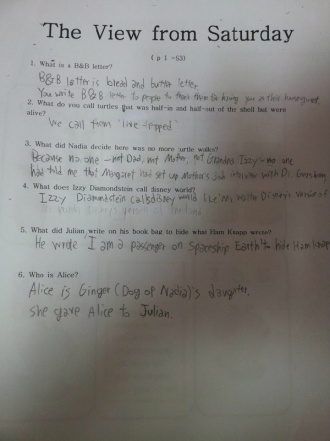 The View from Saturday
( p 1 -53)
1. What is a B&B letter?
B&B letter is bread and butter letter.
You write B&B letter to people to thank them for having you in their house
2. What do you call turtles that was half-in and half-out of the shell but were
alive?
We call them 'live-pipped'
3. What did Nadia decide here was no more urtle walks?
Because no one - not Dad, not Mother, not Grandpa Izzy - no one
had told me that Margaret had set up Mother's job interview with Dr.
4. What does Izzy Diamondstein call disney world?
Izzy Diamondstein calls disney world Walt Disney's version of
5. What did Julian write on his book bag to hide what Ham Knapp wrote?
He wrote 'I am a passenger on Spaceship Earth' to hide Ham
6. Who is Alice?
Alice is Ginger (Dog of Nadia)'s daughter.
She gave Alice to Julian.